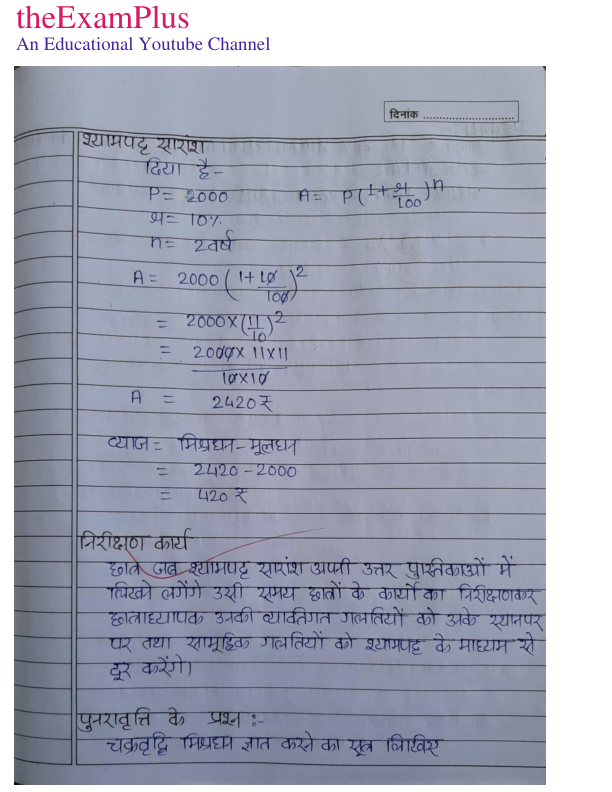 theExamPlus
An Educational Youtube Channel
दिनांक ............................
श्यामपट्ट सारांश
दिया है-
P = 2000 A = P(1+र/100)^n
र = 10%
n = 2 वर्ष
A = 2000 (1+10/100)^2
= 2000×(11/10)^2
= 2000×11×11
10×10
A = 2420 ₹
व्याज = मिश्रधन-मूलधन
= 2420-2000
= 420 ₹
निरीक्षण कार्य
छात्र जब श्यामपट्ट सारांश अपनी उत्तर पुस्तिकाओं में
लिखने लगेंगे उसी समय छात्रों के कार्यो का निरीक्षणकर
छात्राध्यापक उनकी व्यक्तिगत गलतियों को उनके स्थानपर
पर तथा सामूहिक गलतियों को श्यामपट्ट के माध्यम से
दूर करेंगे।
पुनरावृत्ति के प्रश्न :-
चक्रवृद्धि मिश्रधन ज्ञात करने का सूत्र लिखिए